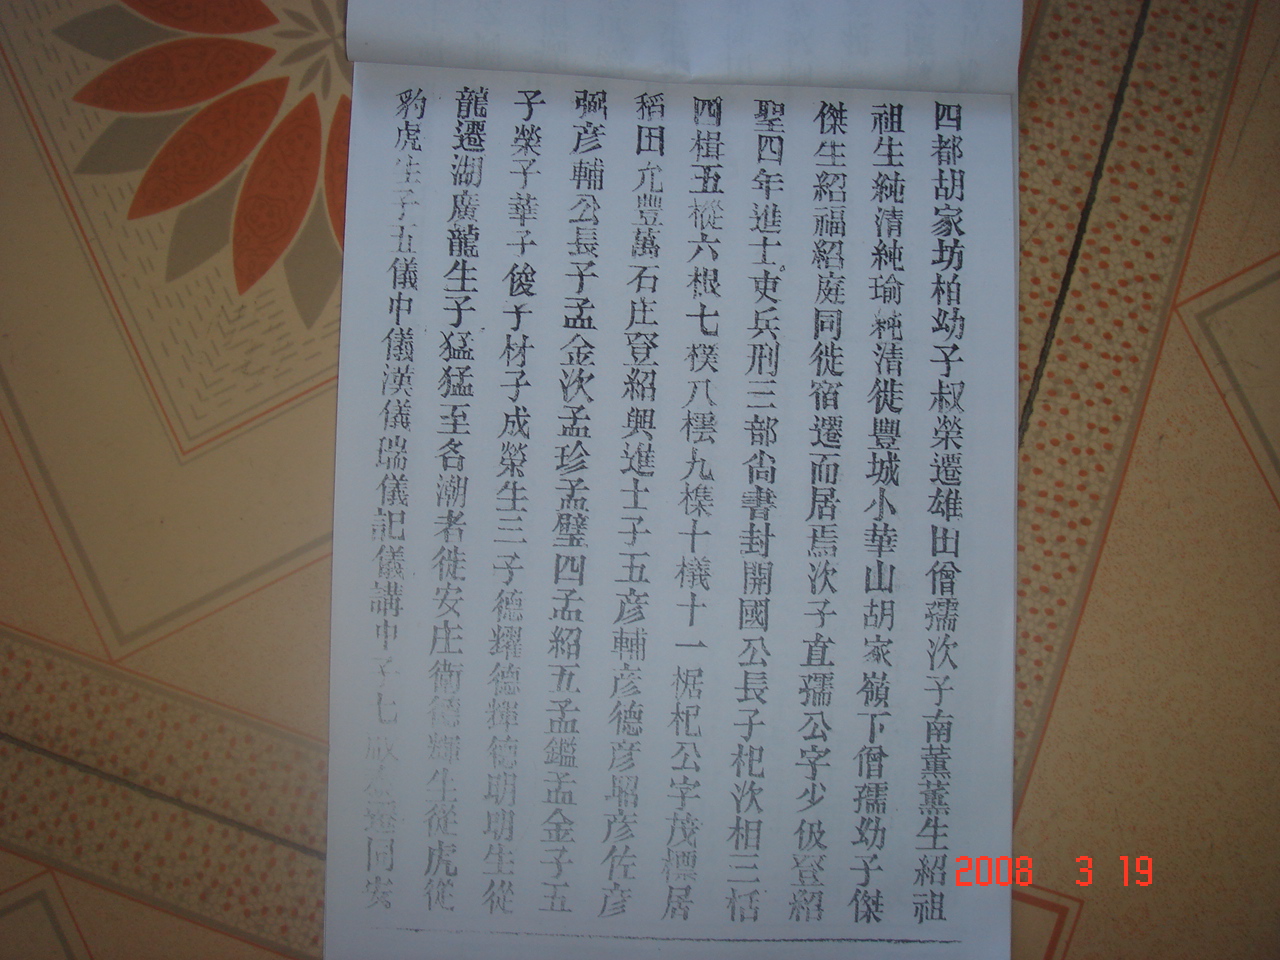 四都胡家坊柏幼子叔榮遷雄田僧孺次子南薰薰生紹祖
祖生純清純瑜純清徙豐城小華山胡家嶺下僧孺幼子傑
傑生紹福紹庭同徙宿遷而居焉次子直孺公字少伋登紹
聖四年進士吏兵刑三部尙書封開國公長子杞次相三栝
四楫五樅六根七樸八橒九榘十檥十一椐杞公字茂標居
稻田允豐萬石庄登紹興進士子五彦輔彦德彦昭彦佐彦
弼彦輔公長子孟金次孟珍孟璧四孟紹五孟鑑孟金子五
子榮子華子俊子材子成榮生三子德耀德輝德明明生從
龍遷湖廣龍生子猛猛至各潮者徙安庄衛德輝生從虎從
豹虎生子五儀中儀漢儀瑞儀記儀講中子七遷同安
2008 3 19